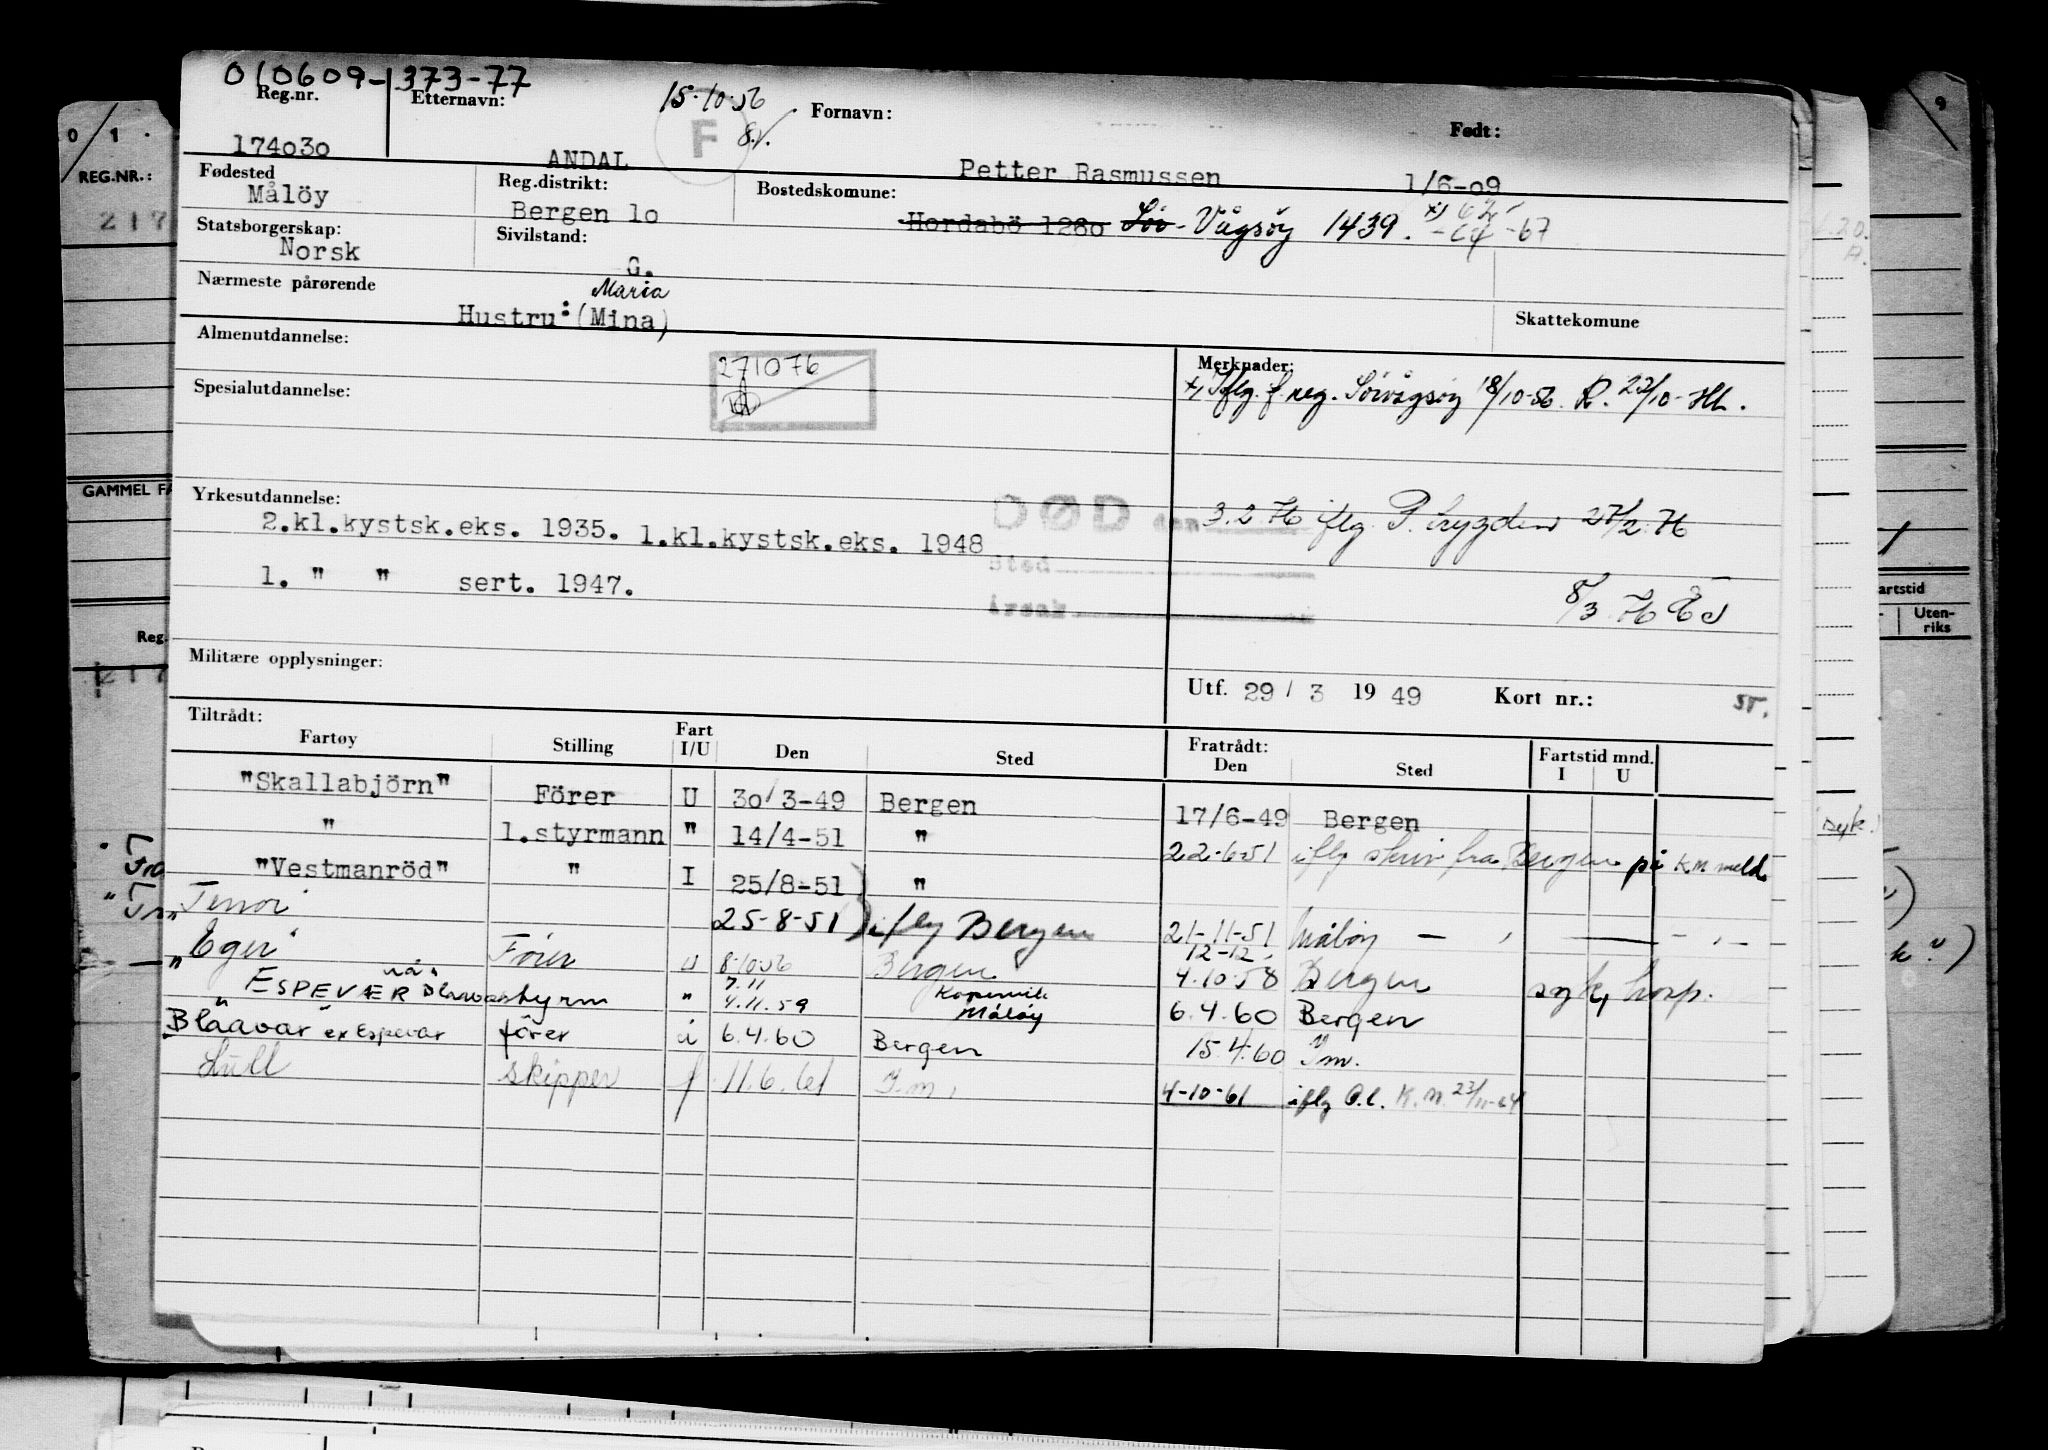 010609-373-77
Reg.nr. Etternavn: 15.10.56 Fornavn: Født:
F 8/.
174030 ANDAL Petter Rasmussen 1/6-09
Fødested Reg.distrikt: Bostedskomune:
Målöy Bergen 10 Hordabö 1280 Sör-Vågsöy 1439. x) 62 -64 -67
Statsborgerskap: Sivilstand:
Norsk G.
Nærmeste pårørende Maria
Hustru: (Mina)
Skattekomune
Almenutdannelse: Merknader:
271076
x, Iflg. f.reg. Sörvågsöy 18/10-56. R. 23/10-
Spesialutdannelse:
Yrkesutdannelse:
2.kl.kystsk.eks. 1935. 1.kl.kystsk.eks. 1948
DØD den 3.2.76 iflg P. trygden 27/2.76
1. " " sert. 1947.
Sted
Årsak
8/3.76
Militære opplysninger:
Utf. 29 / 3 19 49 Kort nr.:
Tiltrådt: Fratrådt: Fartstid mnd.
Fartøy Stilling Fart I/U Den Sted Den Sted I U
"Skallabjörn" Förer U 30/3-49 Bergen 17/6-49 Bergen
" 1.styrmann " 14/4-51 " 22-6-51 iflg skriv fra Bergen på KM meld.
"Vestmanröd" " I 25/8-51 "
25-8-51 iflg Bergen 21-11-51 Måløy
"Eger" Förer u 8-10-56 Bergen 4.10.58 Bergen syk, hosp.
12-12
7.11
ESPEVÆR styrm " 4.11.59 Kopervik Måløy 6.4.60 Bergen
Blåavar ex Espevar förer i 6.4.60 Bergen 15.4.60 I.m.
skipper f 11.6.61 I.m. 4-10-61 iflg K.M. 23/11-64
0/1.
REG.NR.:
217
GAMMEL
Reg.
217
9
artstid
Uten-
riks
syk.